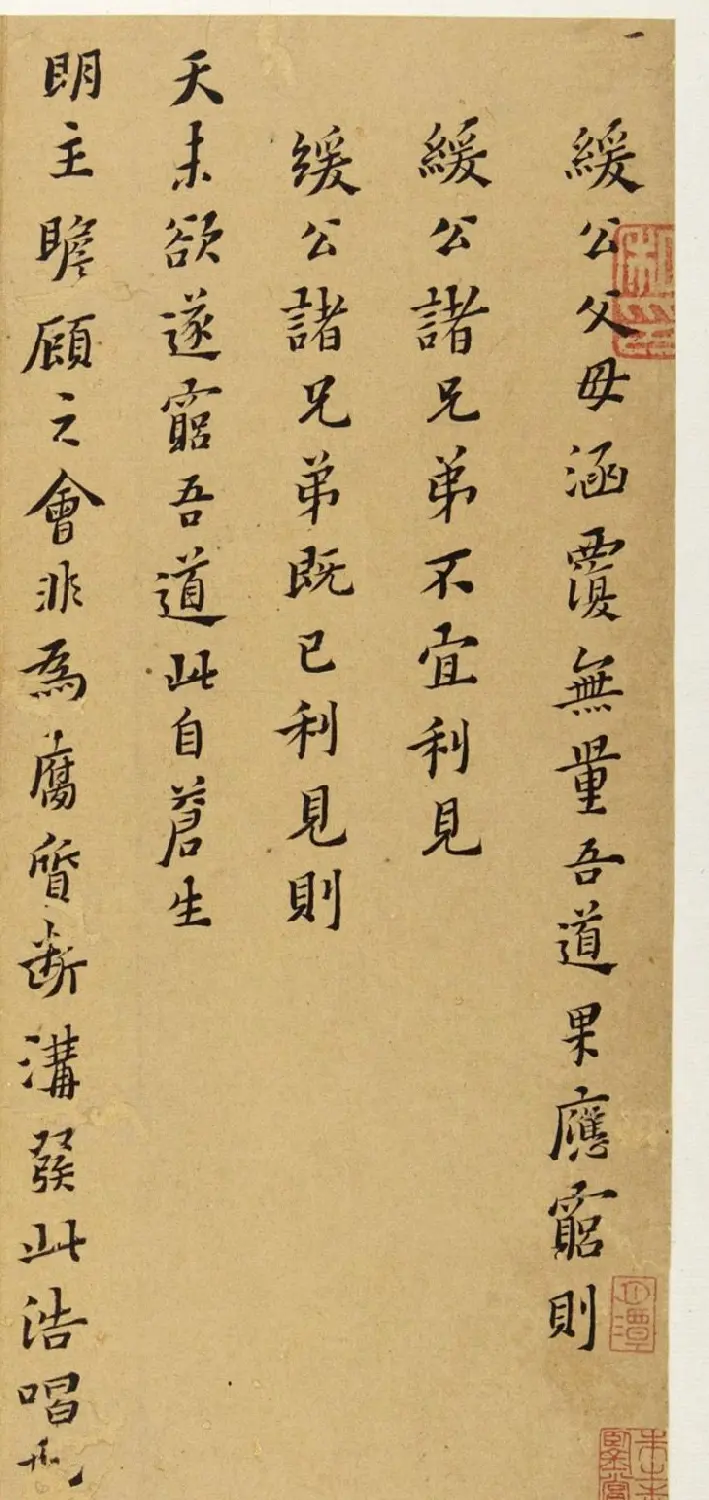 緩公父母涵覆無量吾道果應窮則
緩公諸兄弟不宜利見
緩公諸兄弟既已利見則
天未欲遂窮吾道此自蒼生
明主瞻顧之會非為腐質斷溝發此浩唱